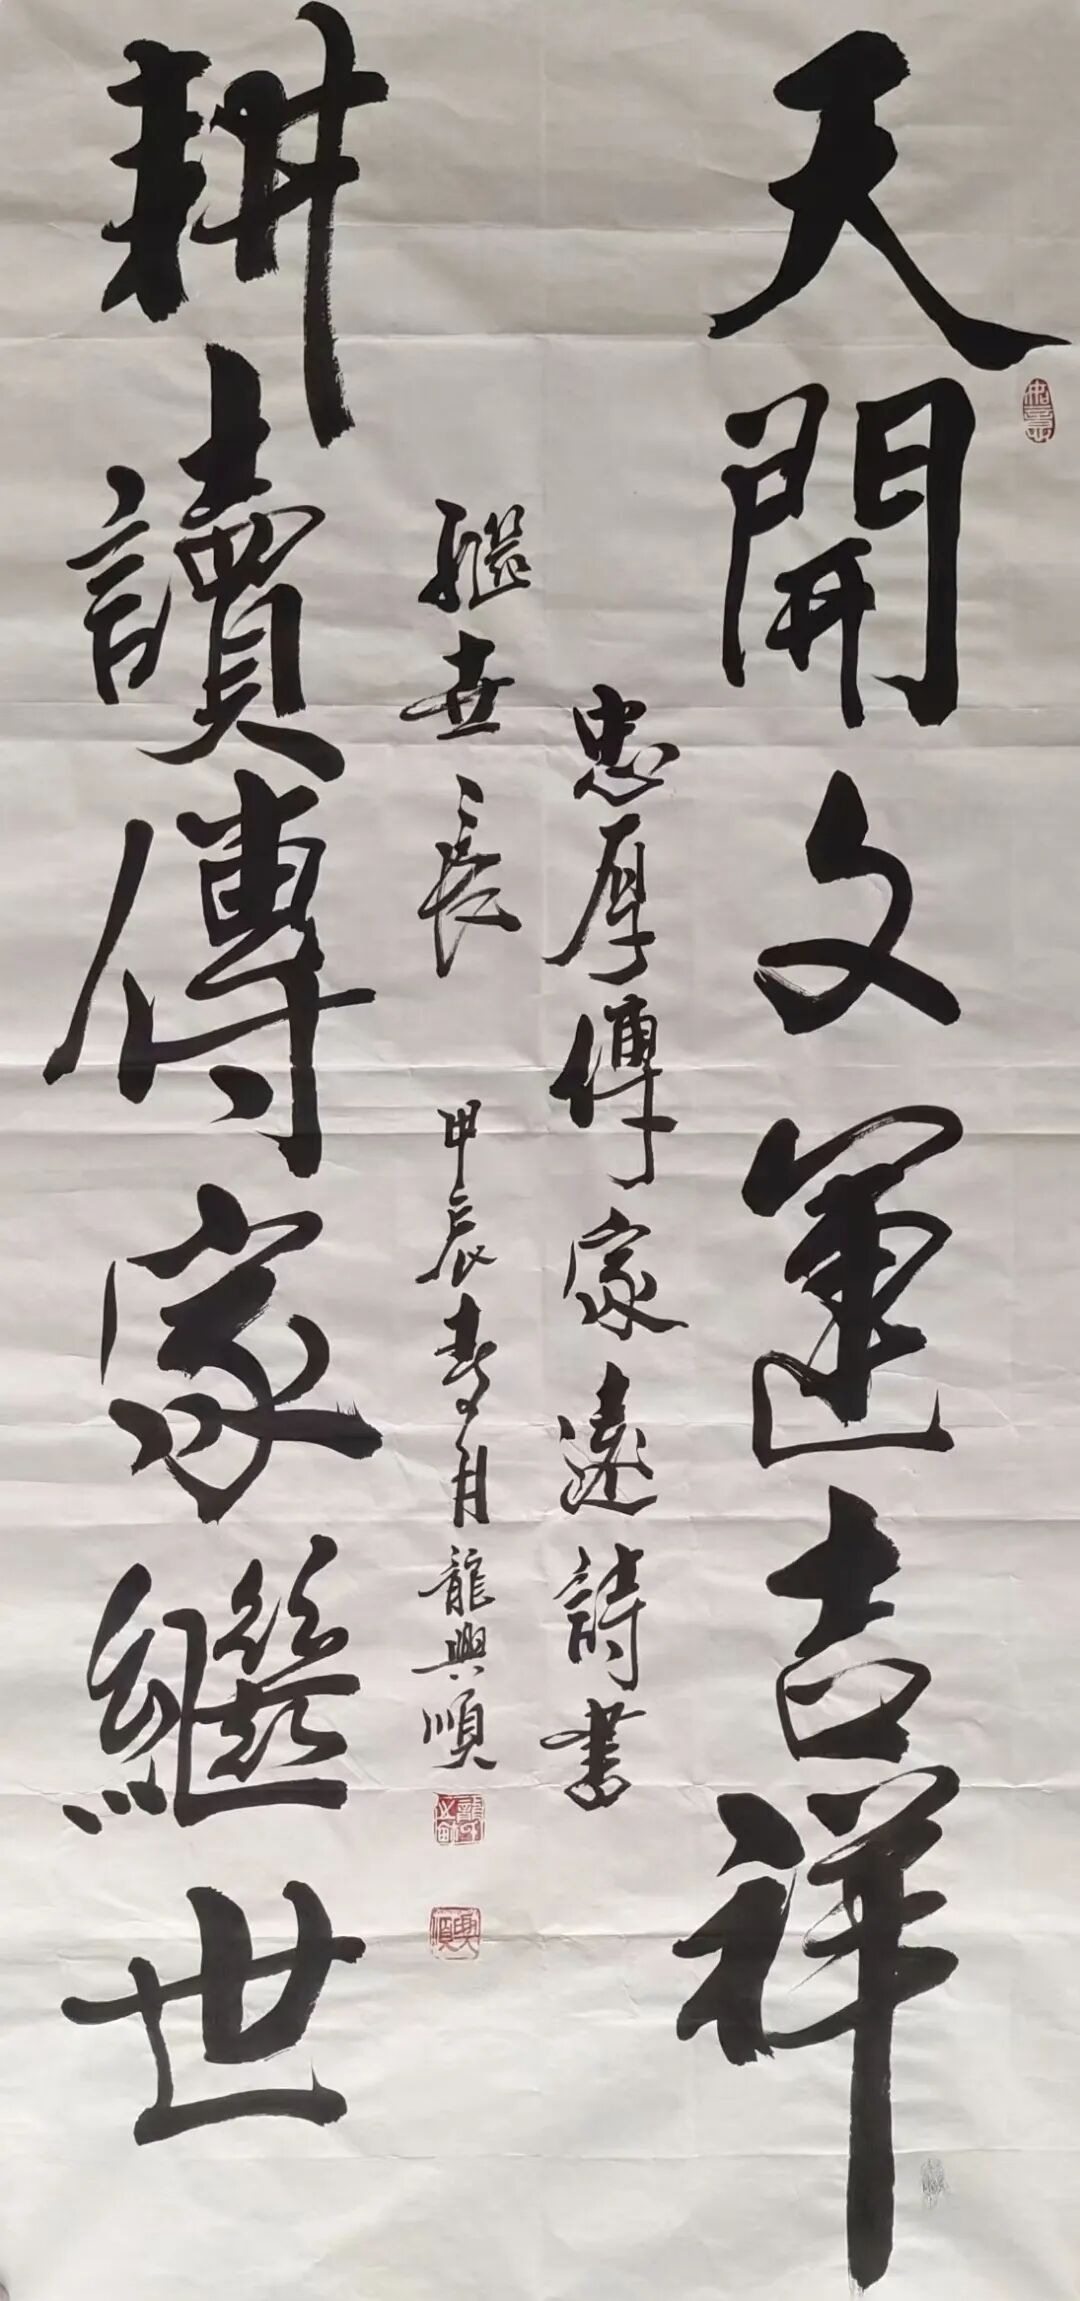 天開文運吉祥
忠厚傳家遠詩書
繼世長
甲辰春月龍興順
耕讀傳家繼世
興順